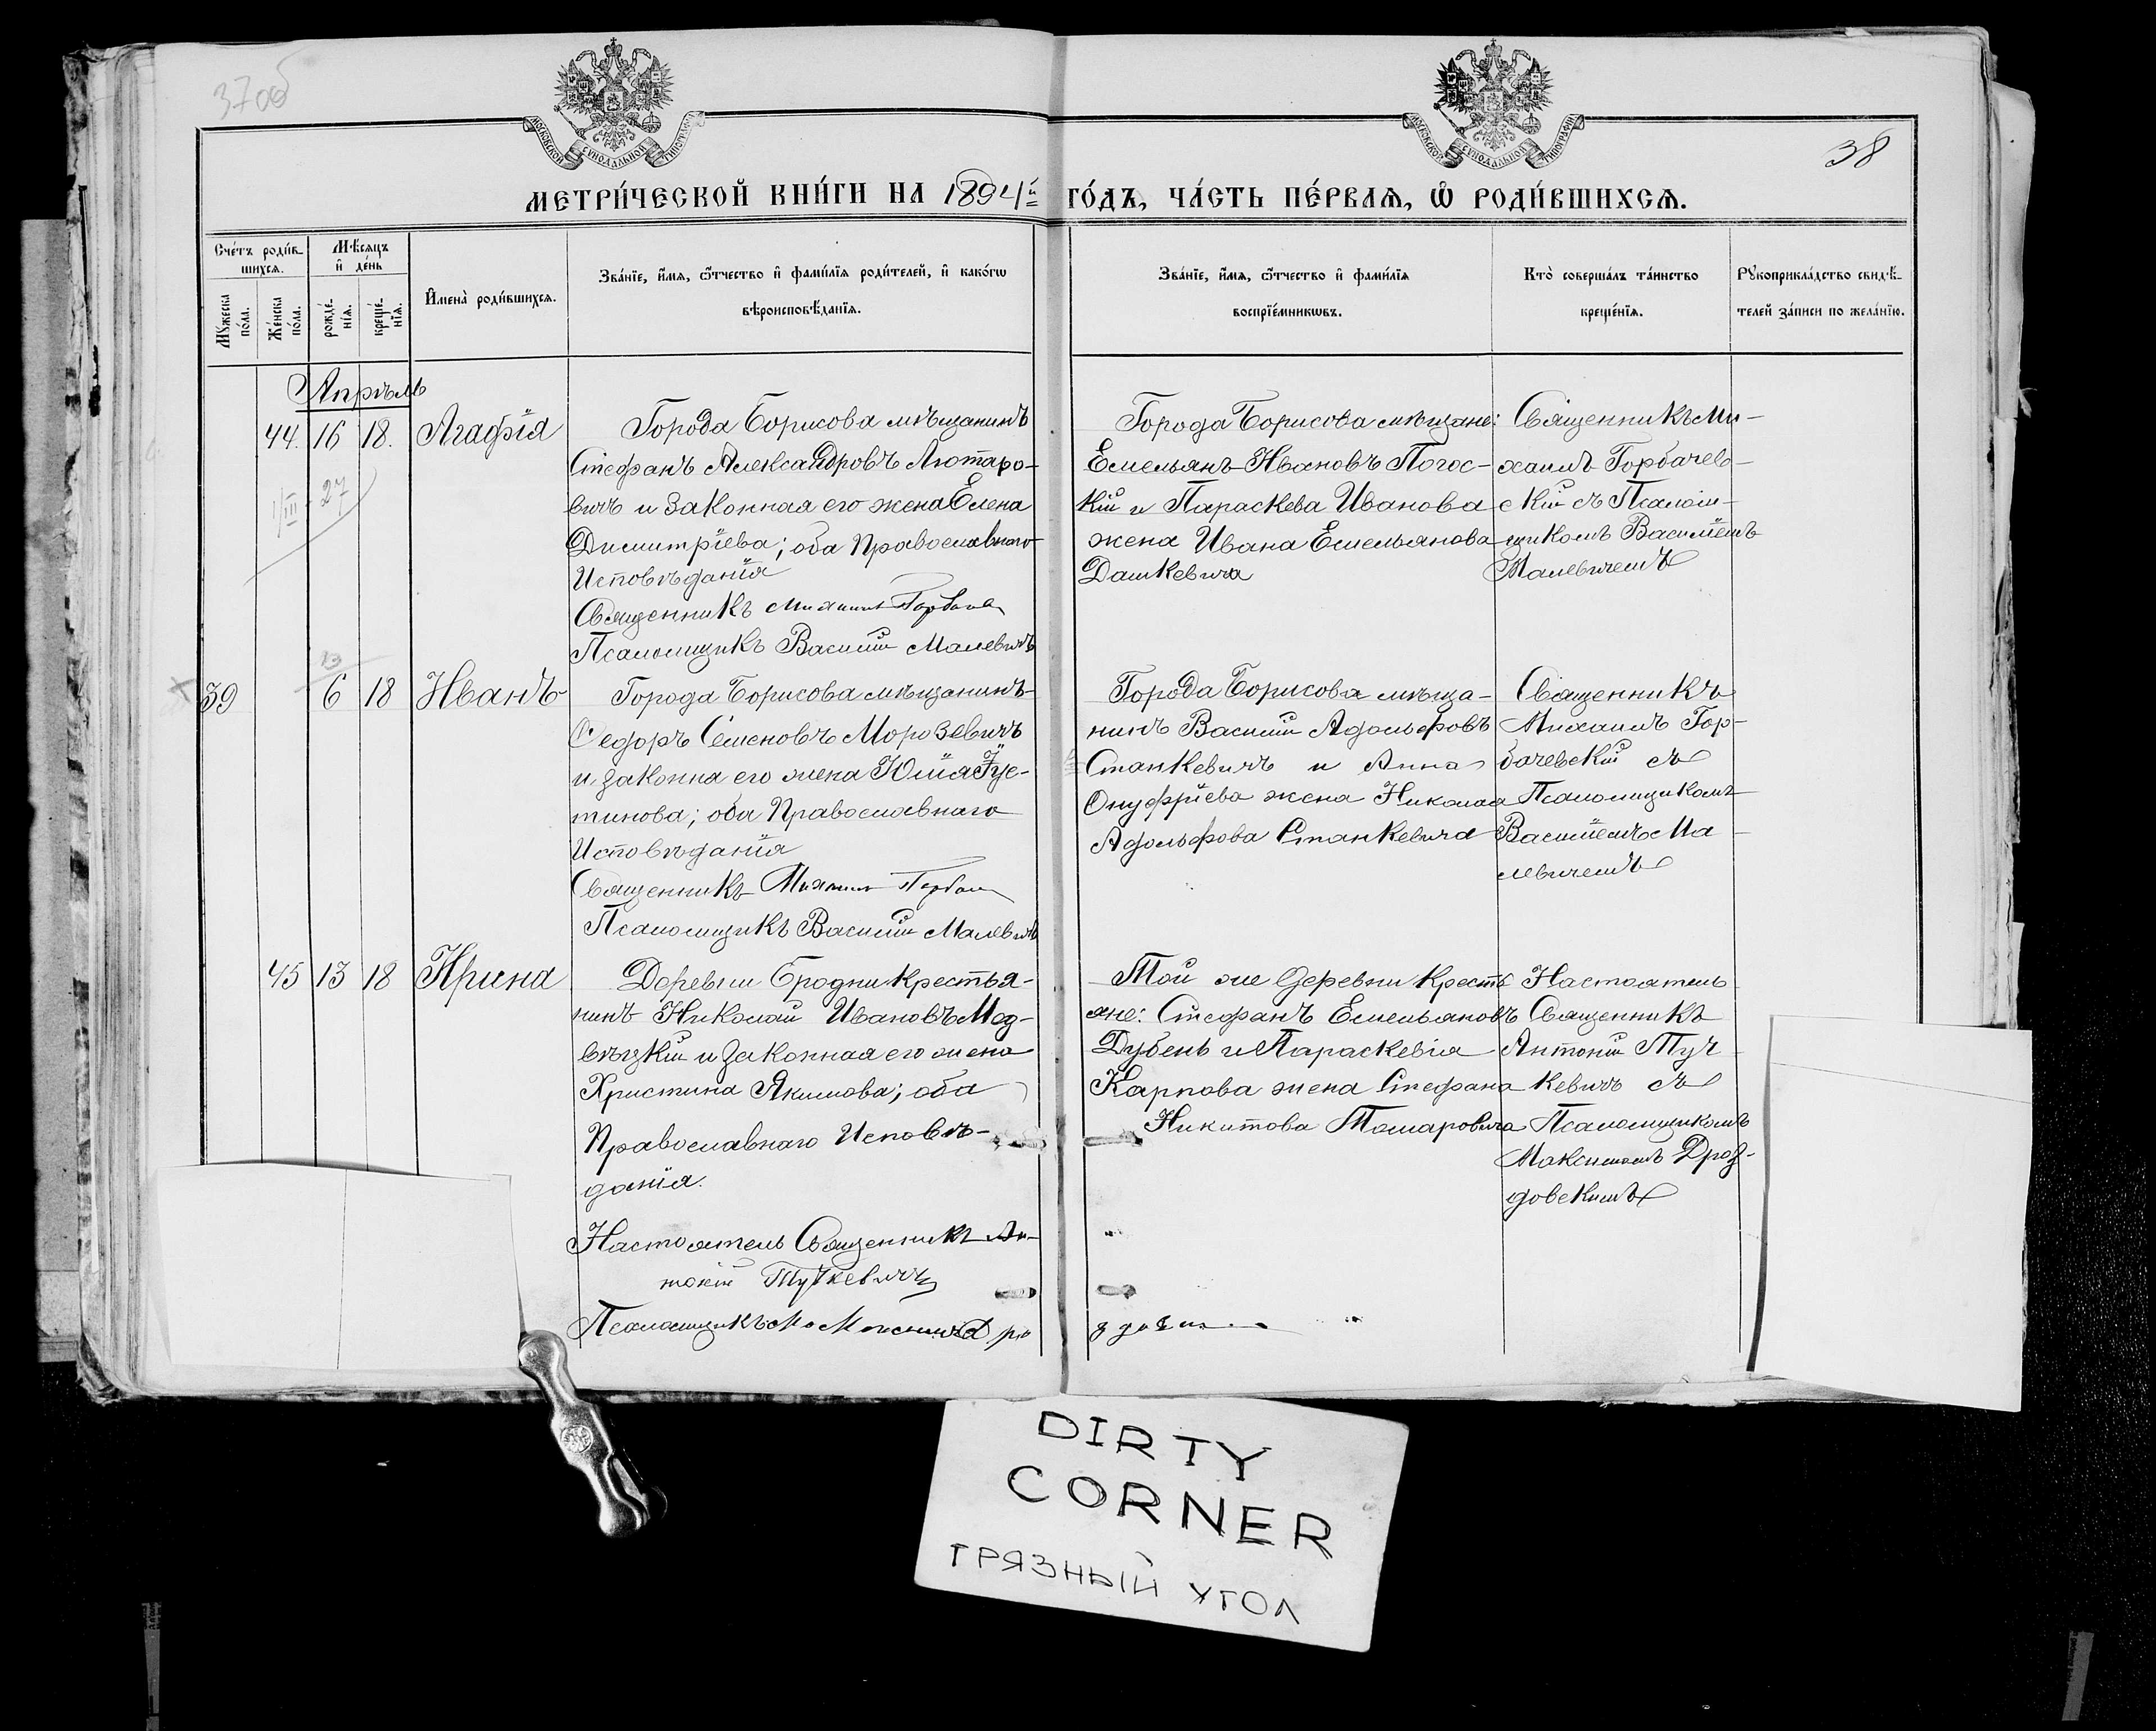 37об
38
МОСКОВСКОЙ СУНОДАЛЬНОЙ ТИПОГРАФІИ
МОСКОВСКОЙ СУНОДАЛЬНОЙ ТИПОГРАФІИ
МЕТРИ́ЧЕСКОЙ КНИ́ГИ НА 1894й ГО́ДЪ, ЧА́СТЬ ПЕ́РВАѦ, Ѡ҆ РОДИ́ВШИХСѦ.
Сче́тъ роди́в-
шихсѧ.
Мꙋжеска
по́ла.
Же́нска
по́ла.
Мѣ́сѧцъ
и҆ де́нь
рожде́-
нїѧ.
креще́-
нїѧ.
И҆мена̀ роди́вшихсѧ.
Зва́нїе, и҆́мѧ, ѻ҆́тчество и҆ фами́лїѧ роди́телей, и҆ како́гѡ
вѣроисповѣ́данїѧ.
Зва́нїе, и҆́мѧ, ѻ҆́тчество и҆ фами́лїѧ
воспрїе́мникѡвъ.
Кто̀ соверша́лъ та́инство
креще́нїѧ.
Рꙋкоприкла́дство свидѣ́-
телей за́писи по жела́нїю.
Апрѣль
44. 16 18. Агафія
Города Борисова мѣщанинъ
Стефанъ Александровъ Лютаро-
вичъ и законная его жена Елена
Димитріева; оба Православнаго
Исповѣданія
Священникъ Михаилъ
Псаломщикъ Василій Малевичъ
Города Борисова мѣщане:
Емельянъ Ивановъ Погос-
кій и Параскева Иванова
жена Ивана Емельянова
Дашкевича
Священникъ Ми-
хаилъ Горбачев-
скій съ Псалом-
щикомъ Василіемъ
Малевичемъ
1/III 27
13
39 6 18 Иванъ
Города Борисова мѣщанинъ
Ѳедоръ Семеновъ Морозевичъ
и законна его жена Юлія Іус-
тинова; оба Православнаго
Исповѣданія
Священникъ Михаилъ
Псаломщикъ Василій Малевичъ
Города Борисова мѣща-
нинъ Василій Адольфовъ
Станкевичъ и Анна
Онуфріева жена Николая
Адольфова Станкевича
Священникъ
Михаилъ Гор-
бачевскій съ
Псаломщикомъ
Василіемъ Ма
левичемъ
45 13 18 Ирина
Деревни Бродни крестья-
нинъ Николай Ивановъ Мед-
вѣцкій и законная его жена
Христина Якимова; оба
Православнаго Исповѣ-
данія.
Настоятель Священникъ Ан-
тоній Тучкевичъ
Псаломщикъ
Той же деревни крестъ
яне: Стефанъ Емельяновъ
Дубень и Параскевія
Карпова жена Стефана
Никитова Томаровича
Настоятель
Священникъ
Антоній Туч
кевичъ съ
Псаломщикомъ
Максимомъ Дроз-
довскимъ
DIRTY
CORNER
ГРЯЗНЫЙ УГОЛ